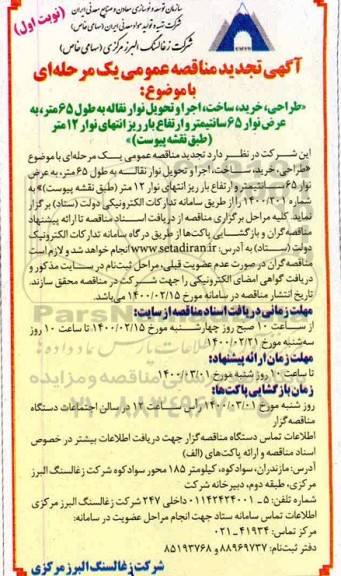 (نوبت اول)
سازمان توسعه و نوسازی معادن و صنایع معدنی ایران
شرکت تهیه و تولید مواد معدنی ایران (سهامی خاص)
شرکت زغالسنگ البرز مرکزی (سهامی خاص)
آگهی تجدید مناقصه عمومی یک مرحله‌ای
با موضوع:
«طراحی، خرید، ساخت، اجرا و تحویل نوار نقاله به طول ۶۵ متر، به
عرض نوار ۶۵ سانتیمتر و ارتفاع بار ریز انتهای نوار ۱۲ متر
(طبق نقشه پیوست)»
این شرکت در نظر دارد تجدید مناقصه عمومی یک مرحله‌ای با موضوع
«طراحی، خرید، ساخت، اجرا و تحویل نوار نقاله به طول ۶۵ متر، به عرض
نوار ۶۵ سانتیمتر و ارتفاع بار ریز انتهای نوار ۱۲ متر (طبق نقشه پیوست)» به
شماره ۱۴۰۰/۲۰۱ را از طریق سامانه تدارکات الکترونیکی دولت (ستاد) برگزار
نماید. کلیه مراحل برگزاری مناقصه از دریافت اسناد مناقصه تا ارائه پیشنهاد
مناقصه‌گران و بازگشایی پاکت‌ها از طریق درگاه سامانه تدارکات الکترونیک
دولت (ستاد) به آدرس: www.setadiran.ir انجام خواهد شد و لازم است
مناقصه گران در صورت عدم عضویت قبلی، مراحل ثبت‌نام در سایت مذکور و
دریافت گواهی امضای الکترونیکی را جهت شرکت در مناقصه محقق سازند.
تاریخ انتشار مناقصه در سامانه مورخ ۱۴۰۰/۰۲/۱۵ می‌باشد.
مهلت زمانی دریافت اسناد مناقصه از سایت:
از ساعت ۱۰ صبح روز چهارشنبه مورخ ۱۴۰۰/۰۲/۱۵ تا ساعت ۱۰ روز
سه‌شنبه مورخ ۱۴۰۰/۰۲/۲۱
مهلت زمانی ارائه پیشنهاد:
تا ساعت ۱۰ روز شنبه مورخ ۱۴۰۰/۰۳/۰۱
زمان بازگشایی پاکت‌ها:
روز شنبه مورخ ۱۴۰۰/۰۳/۰۱ راس ساعت ۱۲ در سالن اجتماعات دستگاه
مناقصه‌گزار
اطلاعات تماس دستگاه مناقصه‌گزار جهت دریافت اطلاعات بیشتر در خصوص
اسناد مناقصه و ارائه پاکت‌های (الف)
آدرس: مازندران، سوادکوه، کیلومتر ۱۸۵ محور سوادکوه شرکت زغالسنگ البرز
مرکزی، طبقه دوم، دبیرخانه شرکت
شماره تلفن: ۵ـ ۰۱۱۴۲۴۲۴۰۰۱ داخلی ۲۴۷ شرکت زغالسنگ البرز مرکزی
اطلاعات تماس سامانه ستاد جهت انجام مراحل عضویت در سامانه:
مرکز تماس: ۴۱۹۳۴ـ۰۲۱
دفتر ثبت‌نام: ۸۸۹۶۹۷۳۷ و ۸۵۱۹۳۷۶۸
شرکت زغالسنگ البرز مرکزی